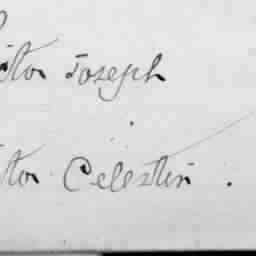 ctor Joseph
tor Celestin .